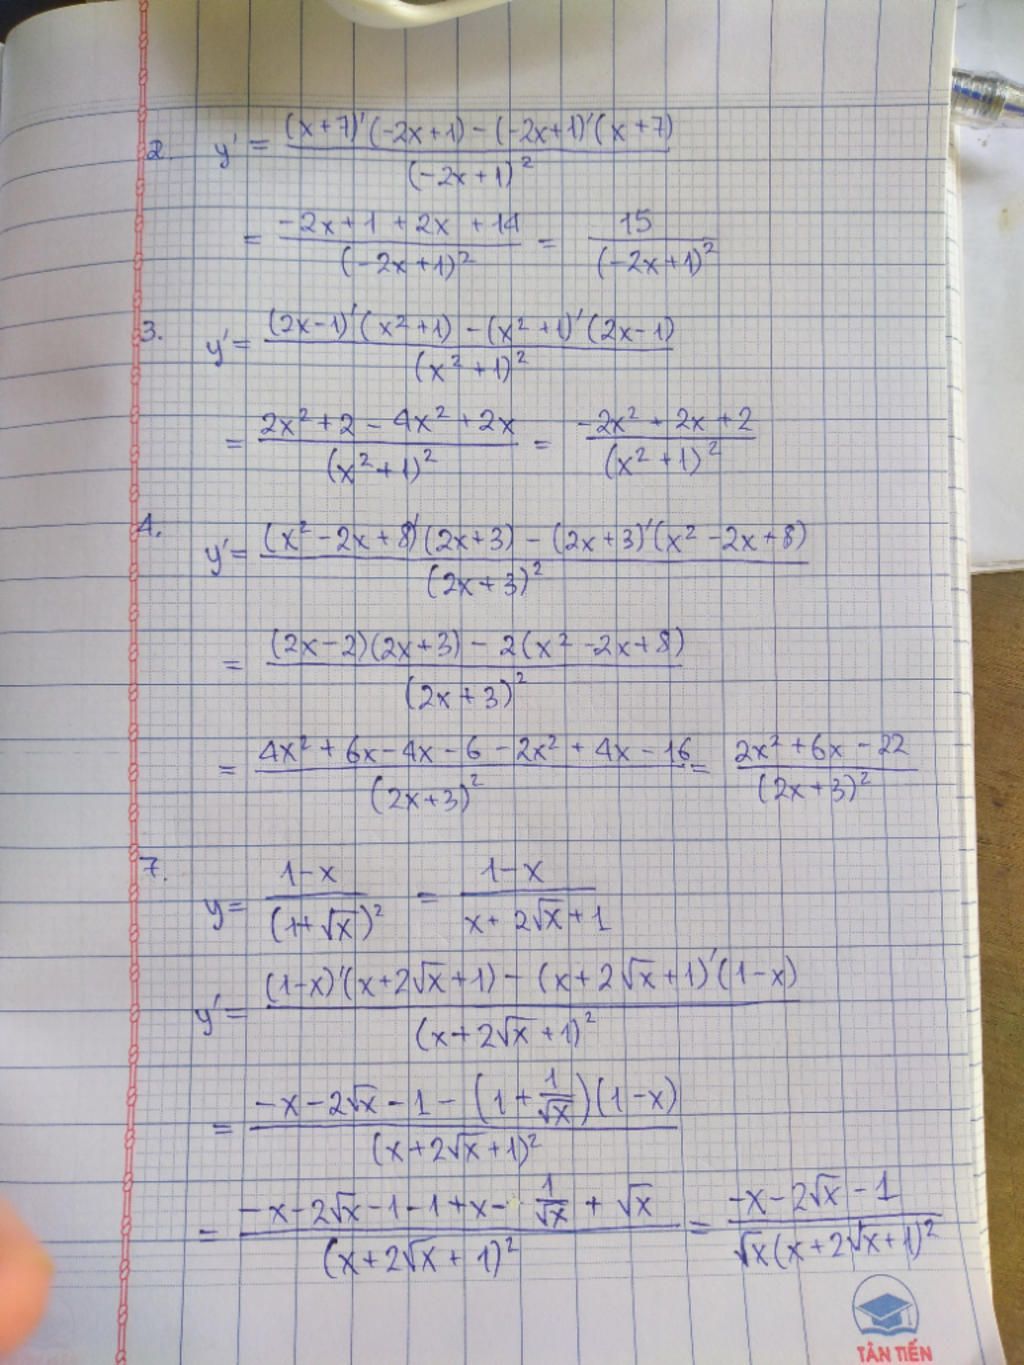 2. y' = \frac{(x+7)'(-2x+1) - (-2x+1)'(x+7)}{(-2x+1)^2}
= \frac{-2x+1+2x+14}{(-2x+1)^2} = \frac{15}{(-2x+1)^2}
3. y' = \frac{(2x-1)'(x^2+1) - (x^2+1)'(2x-1)}{(x^2+1)^2}
= \frac{2x^2+2-4x^2+2x}{(x^2+1)^2} = \frac{-2x^2+2x+2}{(x^2+1)^2}
4. y' = \frac{(x^2-2x+8)'(2x+3) - (2x+3)'(x^2-2x+8)}{(2x+3)^2}
= \frac{(2x-2)(2x+3) - 2(x^2-2x+8)}{(2x+3)^2}
= \frac{4x^2+6x-4x-6-2x^2+4x-16}{(2x+3)^2} = \frac{2x^2+6x-22}{(2x+3)^2}
7. y = \frac{1-x}{(1+\sqrt{x})^2} = \frac{1-x}{x+2\sqrt{x}+1}
y' = \frac{(1-x)'(x+2\sqrt{x}+1) - (x+2\sqrt{x}+1)'(1-x)}{(x+2\sqrt{x}+1)^2}
= \frac{-x-2\sqrt{x}-1-(1+\frac{1}{\sqrt{x}})(1-x)}{(x+2\sqrt{x}+1)^2}
= \frac{-x-2\sqrt{x}-1-1+x-\frac{1}{\sqrt{x}}+\sqrt{x}}{(x+2\sqrt{x}+1)^2} = \frac{-x-2\sqrt{x}-1}{\sqrt{x}(x+2\sqrt{x}+1)^2}
TÂN TIẾN